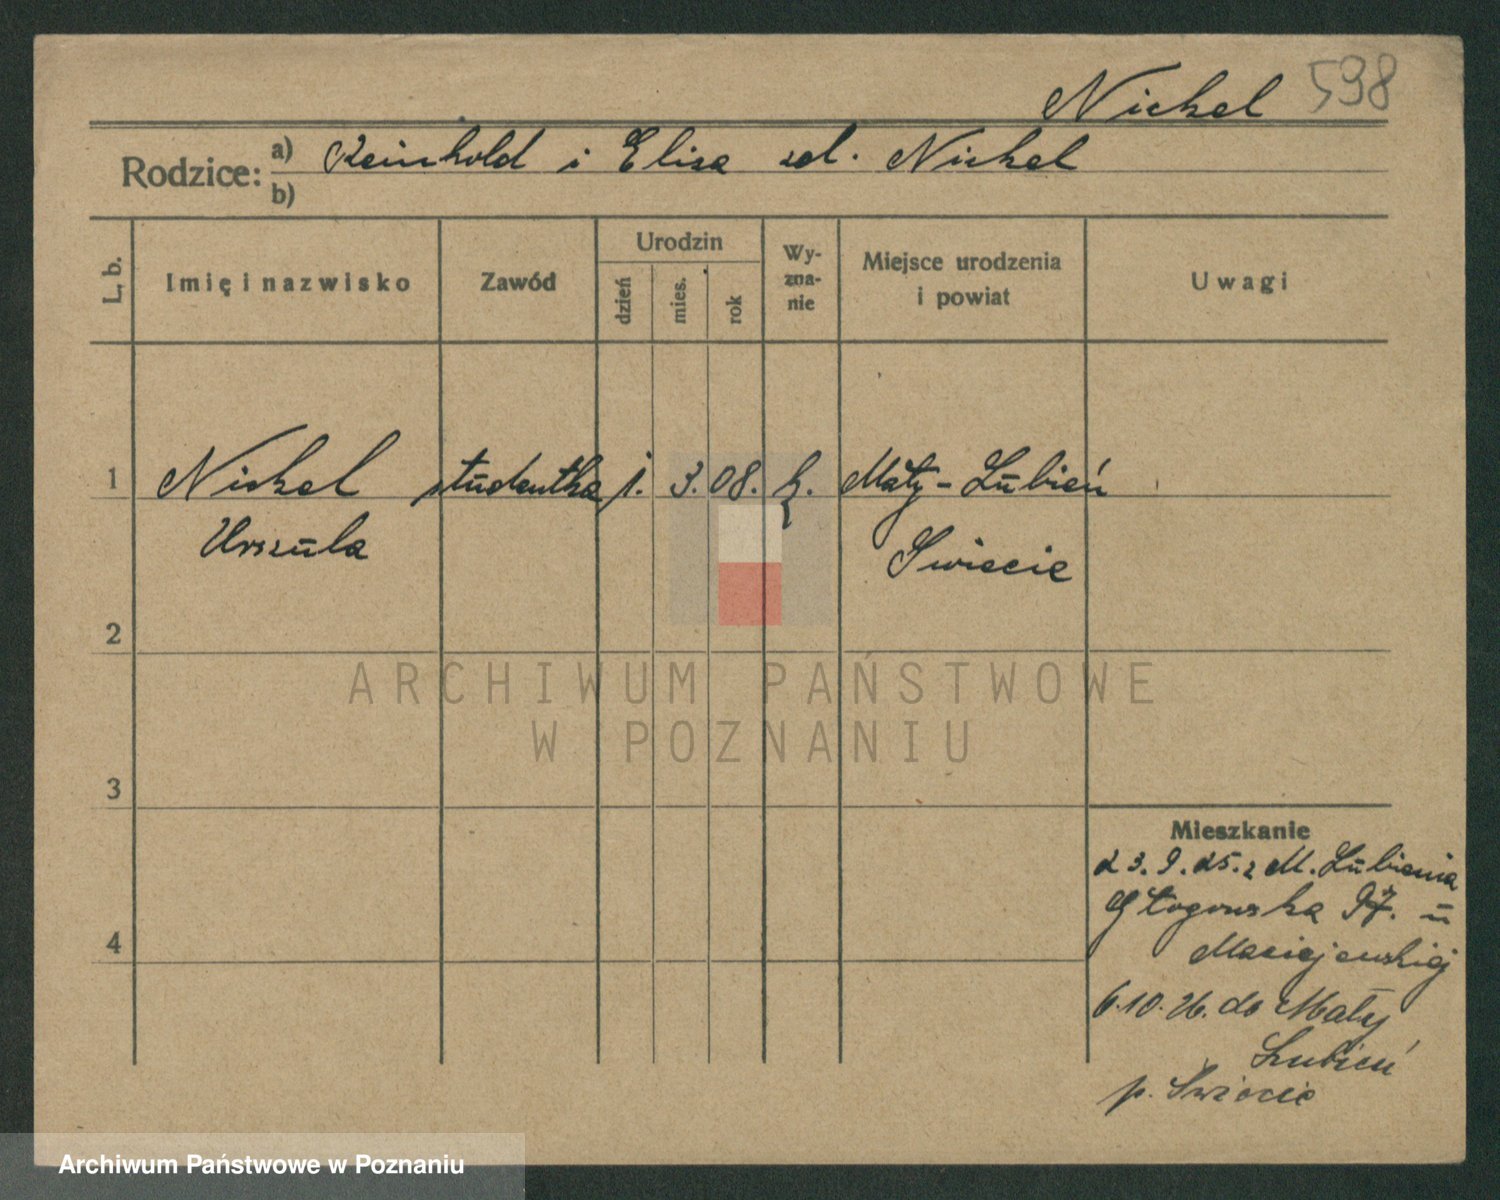 Nickel 598
Rodzice: a) Reinhold i Elisa zd. Nickel
b)
L. b. Imię i nazwisko Zawód Urodzin dzień mies. rok Wy-zna-nie Miejsce urodzenia i powiat Uwagi
1 Nickel studentka 1. 3. 08. Mały-Lubień
Urszula Świecie
2
ARCHIWUM PAŃSTWOWE
W POZNANIU
3
Mieszkanie
23. 9. 25. z M. Lubienia
Głogowska 97. u
Maciejewskiej
4
6.10.26. do Mały
Lubień
p. Świecie
Archiwum Państwowe w Poznaniu